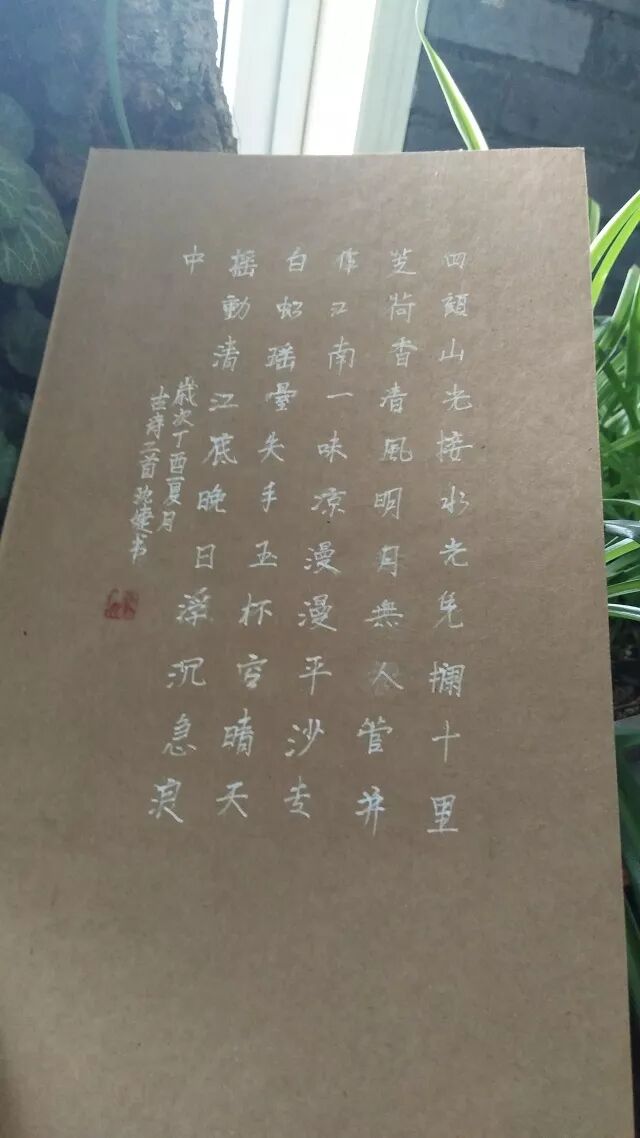 四顧山光接水光凭欄十里
芰荷香清風明月無人管并
作江南一味凉漫漫平沙走
白虹瑶臺失手玉杯空晴天
摇動清江底晚日浮沉急浪
中
歲次丁酉夏月
古詩二首书